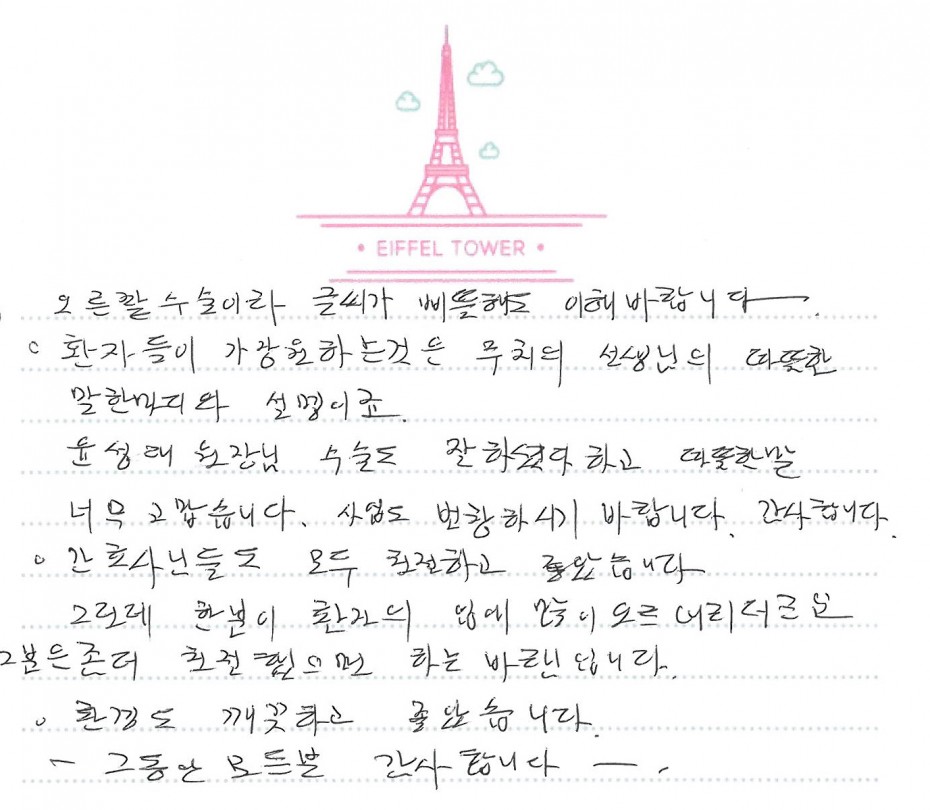 • EIFFEL TOWER •
오른팔 수술이라 글씨가 삐뚤해도 이해바랍니다.
환자들이 가장 원하는것은 주치의 선생님의 따뜻한
말한마디와 설명이죠.
윤성태 원장님 수술도 잘하셨다하고 따뜻한말
너무 고맙습니다. 사업도 번창하시기 바랍니다. 감사합니다.
간호사님들도 모두 친절하고 좋았습니다
그런데 한분이 환자의 입에 많이 오르내리더군요
그분은 좀더 친절했으면 하는 바램입니다.
환경도 깨끗하고 좋았습니다.
- 그동안 모든분 감사합니다 -.